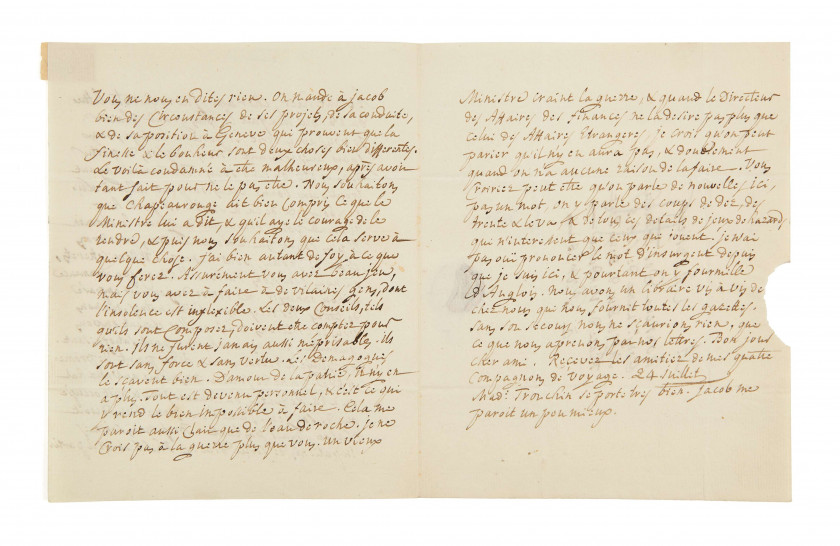 Vous ne nous en dites rien. On mande à Jacob
bien des Circonstances de ses projets, de sa conduite,
& de sa position à Geneve qui prouvent que la
finesse & le bonheur sont deux choses bien differentes.
Le voilà condamné à etre malheureux, après avoir
tant fait pour ne le pas etre. Nous souhaitons
que Chapeaurouge dit bien compris ce que le
Ministre lui a dit, & qu'il aye le courage de le
rendre, & puis nous souhaitons que cela serve à
quelque chose. J'ai bien autant de foy à ce que
vous ferez. Assurement vous avez beau jeu,
mais vous avez à faire à de vilaines gens, dont
l'insolence est inflexible. Les deux Conseils, tels
qu'ils sont Composez, doivent etre comptez pour
rien. Ils ne furent jamais aussi méprisables. Ils
sont sans force & sans vertu. Les Demagogues
le sçavent bien. D'amour de la patrie il n'y en
a plus. Tout est devenu personnel, & c'est ce qui
y rend le bien impossible à faire. Cela me
paroit aussi Clair que de l'eau de roche. je ne
Crois pas à la guerre plus que vous. un vieux
Ministre craint la guerre, & quand le Directeur
des Affaires des finances ne la desire pas plus que
celui des Affaires Etrangeres, je crois qu'on peut
parier qu'il n'y en aura pas, & doublement
quand on n'a aucune raison de la faire. Vous
croiriez peut etre qu'on parle de nouvelles ici,
pas un mot. on y parle des coups de dez, des
trente & leva & de tous ces details de jeux de hazard
que n'interessent que ceux que jouent. je n'ai
pas oui prononcer le mot d'insurgent depuis
que je suis ici, & pourtant on y fourmille
d'Anglois. Nous avons un libraire vis à vis de
chez nous que nous fournit toutes les gazettes.
sans son secours nous ne sçaurions rien, que
ce que nous aprenons par nos lettres. Bon jour
cher ami. Recevez les amitiez de mes quatre
Compagnons de voyage. 24 Juillet
Mad. Tronchin se porte très bien. Jacob me
paroit un peu mieux.